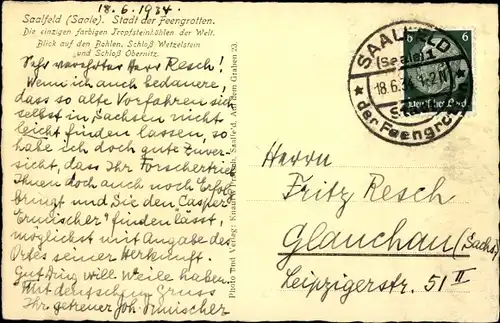 18.6.1934.
Saalfeld (Saale). Stadt der Feengrotten.
Die einzigen farbigen Tropfsteinhöhlen der Welt.
Blick auf den Bohlen, Schloß Wetzelstein
und Schloß Obernitz.
Sehr verehrter Herr Resch!
Wenn ich auch bedauere,
dass so alte Vorfahren sich
selbst in Sachsen nicht
leicht finden lassen, so
habe ich doch gute Zuver-
sicht, dass Ihr Forschertrieb
Ihnen doch auch noch Erfolg
bringt und Sie den Casper
Ermischer" finden lässt,
möglichst mit Angabe des
Ortes seiner Herkunft.
Gut Ding will Weile haben.
Mit deutschem Gruss
Ihr getreuer Joh. Irmischer
Photo und Verlag: Saalfeld, Auf dem Graben 23.
SAALFELD
(Saale) 1
18.6.3
Stadt
der Feengrotten
6
6
Herrn
Fritz Resch
Glauchau (Sachs)
Leipzigerstr. 51 II